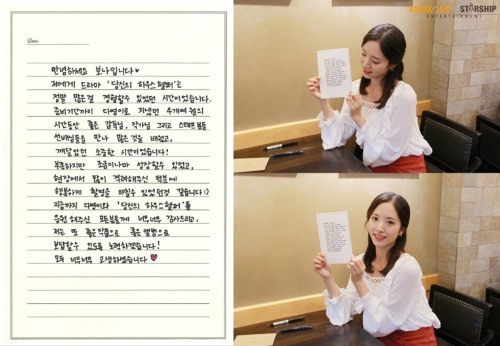 Dear.
안녕하세요 보나입니다♥
저에게 드라마 '당신의 하우스헬퍼'는
정말 많은걸 경험할수 있었던 시간이었습니다.
준비기간까지 다영이로 지냈던 4개여월의
시간동안 좋은 감독님, 작가님 그리고 스태프분들
선배님들을 만나 많은것을 배웠고,
깨달았던 소중한 시간이었습니다!
부족하지만 조금이나마 성장할수 있었고,
현장에서 많이 격려해주신 덕분에
행복하게 촬영을 마칠수 있었던것 같습니다:)
지금까지 다영이와 '당신의 하우스헬퍼'를
응원해주신 모든분들께 너무너무 감사드리고,
저는 또 좋은작품으로 좋은 방법으로
보답할수 있도록 노력하겠습니다!
모두 너무너무 고생하셨습니다♥
STARSHIP
ENTERTAINMENT